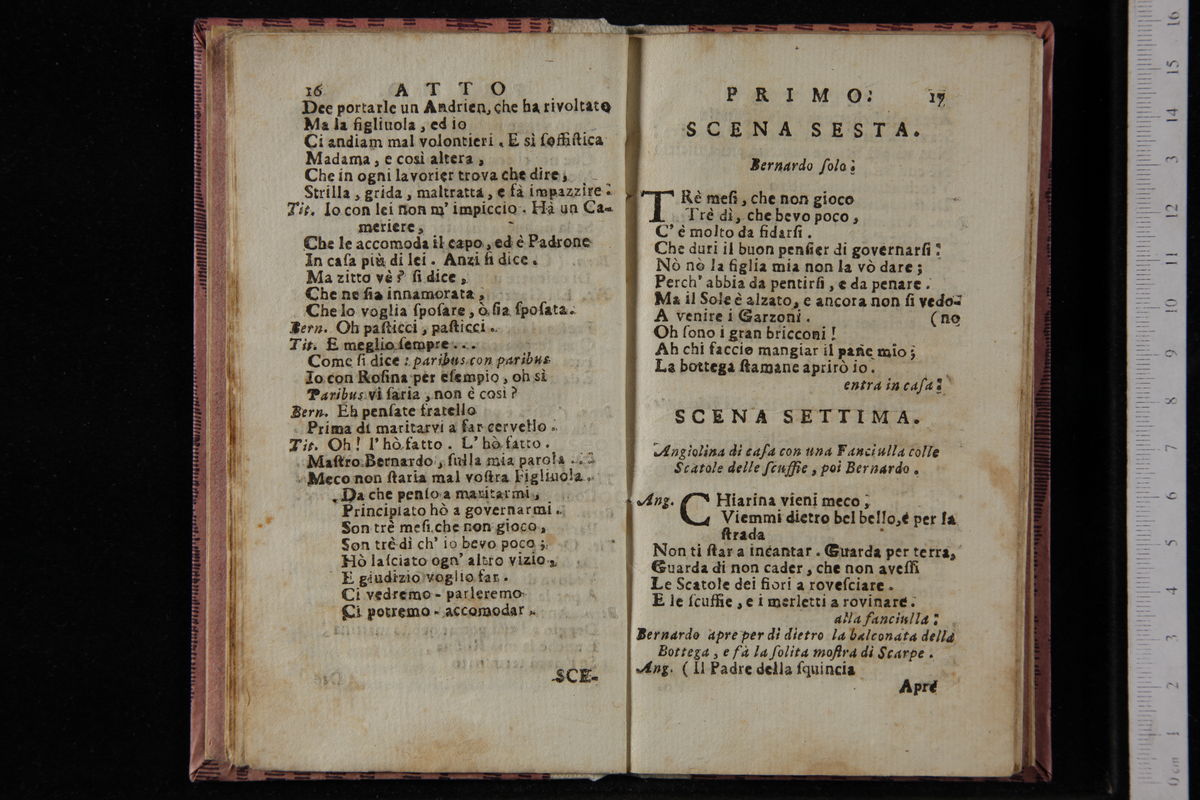 16 ATTO
Dee portarle un Andrien, che ha rivoltato
Ma la figliuola, ed io
Ci andiam mal volontieri. E sì ſoffiſtica
Madama, e così altera,
Che in ogni lavorier trova che dire,
Strilla, grida, maltratta, e fà impazzire:
Tit. Io con lei non m' impiccio. Hà un Ca-
meriere,
Che le accomoda il capo, ed è Padrone
In caſa più di lei. Anzi ſi dice.
Ma zitto vè? ſi dice,
Che ne ſia innamorata,
Che lo voglia ſpoſare, ò ſia ſpoſata.
Bern. Oh paſticci, paſticci.
Tit. E meglio ſempre...
Come ſi dice: paribus con paribus
Io con Roſina per eſempio, oh sì
Paribus vi ſaria, non è cosi?
Bern. Eh penſate fratello
Prima di maritarvi a far cervello.
Tit. Oh! l' hò fatto. L' hò fatto.
Maſtro Bernardo, ſulla mia parola...
Meco non ſtaria mal voſtra Figliuola.
Da che penſo a maritarmi,
Principiato hò a governarmi.
Son trè meſi che non gioco,
Son trè dì ch' io bevo poco;
Hò laſciato ogn' altro vizio,
E giudizio voglio far.
Ci vedremo - parleremo
Ci potremo - accomodar.
SCE-
PRIMO. 17
SCENA SESTA.
Bernardo ſolo.
TRè meſi, che non gioco
Trè dì, che bevo poco,
C' è molto da fidarſi.
Che duri il buon penſier di governarſi:
Nò nò la figlia mia non la vò dare;
Perch' abbia da pentirſi, e da penare.
Ma il Sole è alzato, e ancora non ſi vedo-
A venire i Garzoni. (no
Oh ſono i gran bricconi!
Ah chi faccio mangiar il pane mio;
La bottega ſtamane aprirò io.
entra in caſa.
SCENA SETTIMA.
Angiolina di caſa con una Fanciulla colle
Scatole delle ſcuffie, poi Bernardo.
Ang. CHiarina vieni meco,
Viemmi dietro bel bello, e per la
ſtrada
Non ti ſtar a incantar. Guarda per terra,
Guarda di non cader, che non aveſſi
Le Scatole dei fiori a roveſciare.
E le ſcuffie, e i merletti a rovinare.
alla fanciulla.
Bernardo apre per di dietro la balconata della
Bottega, e fà la ſolita moſtra di Scarpe.
Ang. (Il Padre della ſquincia
Apre
16
15
14
13
12
11
10
9
8
7
6
5
4
3
2
1
0 cm